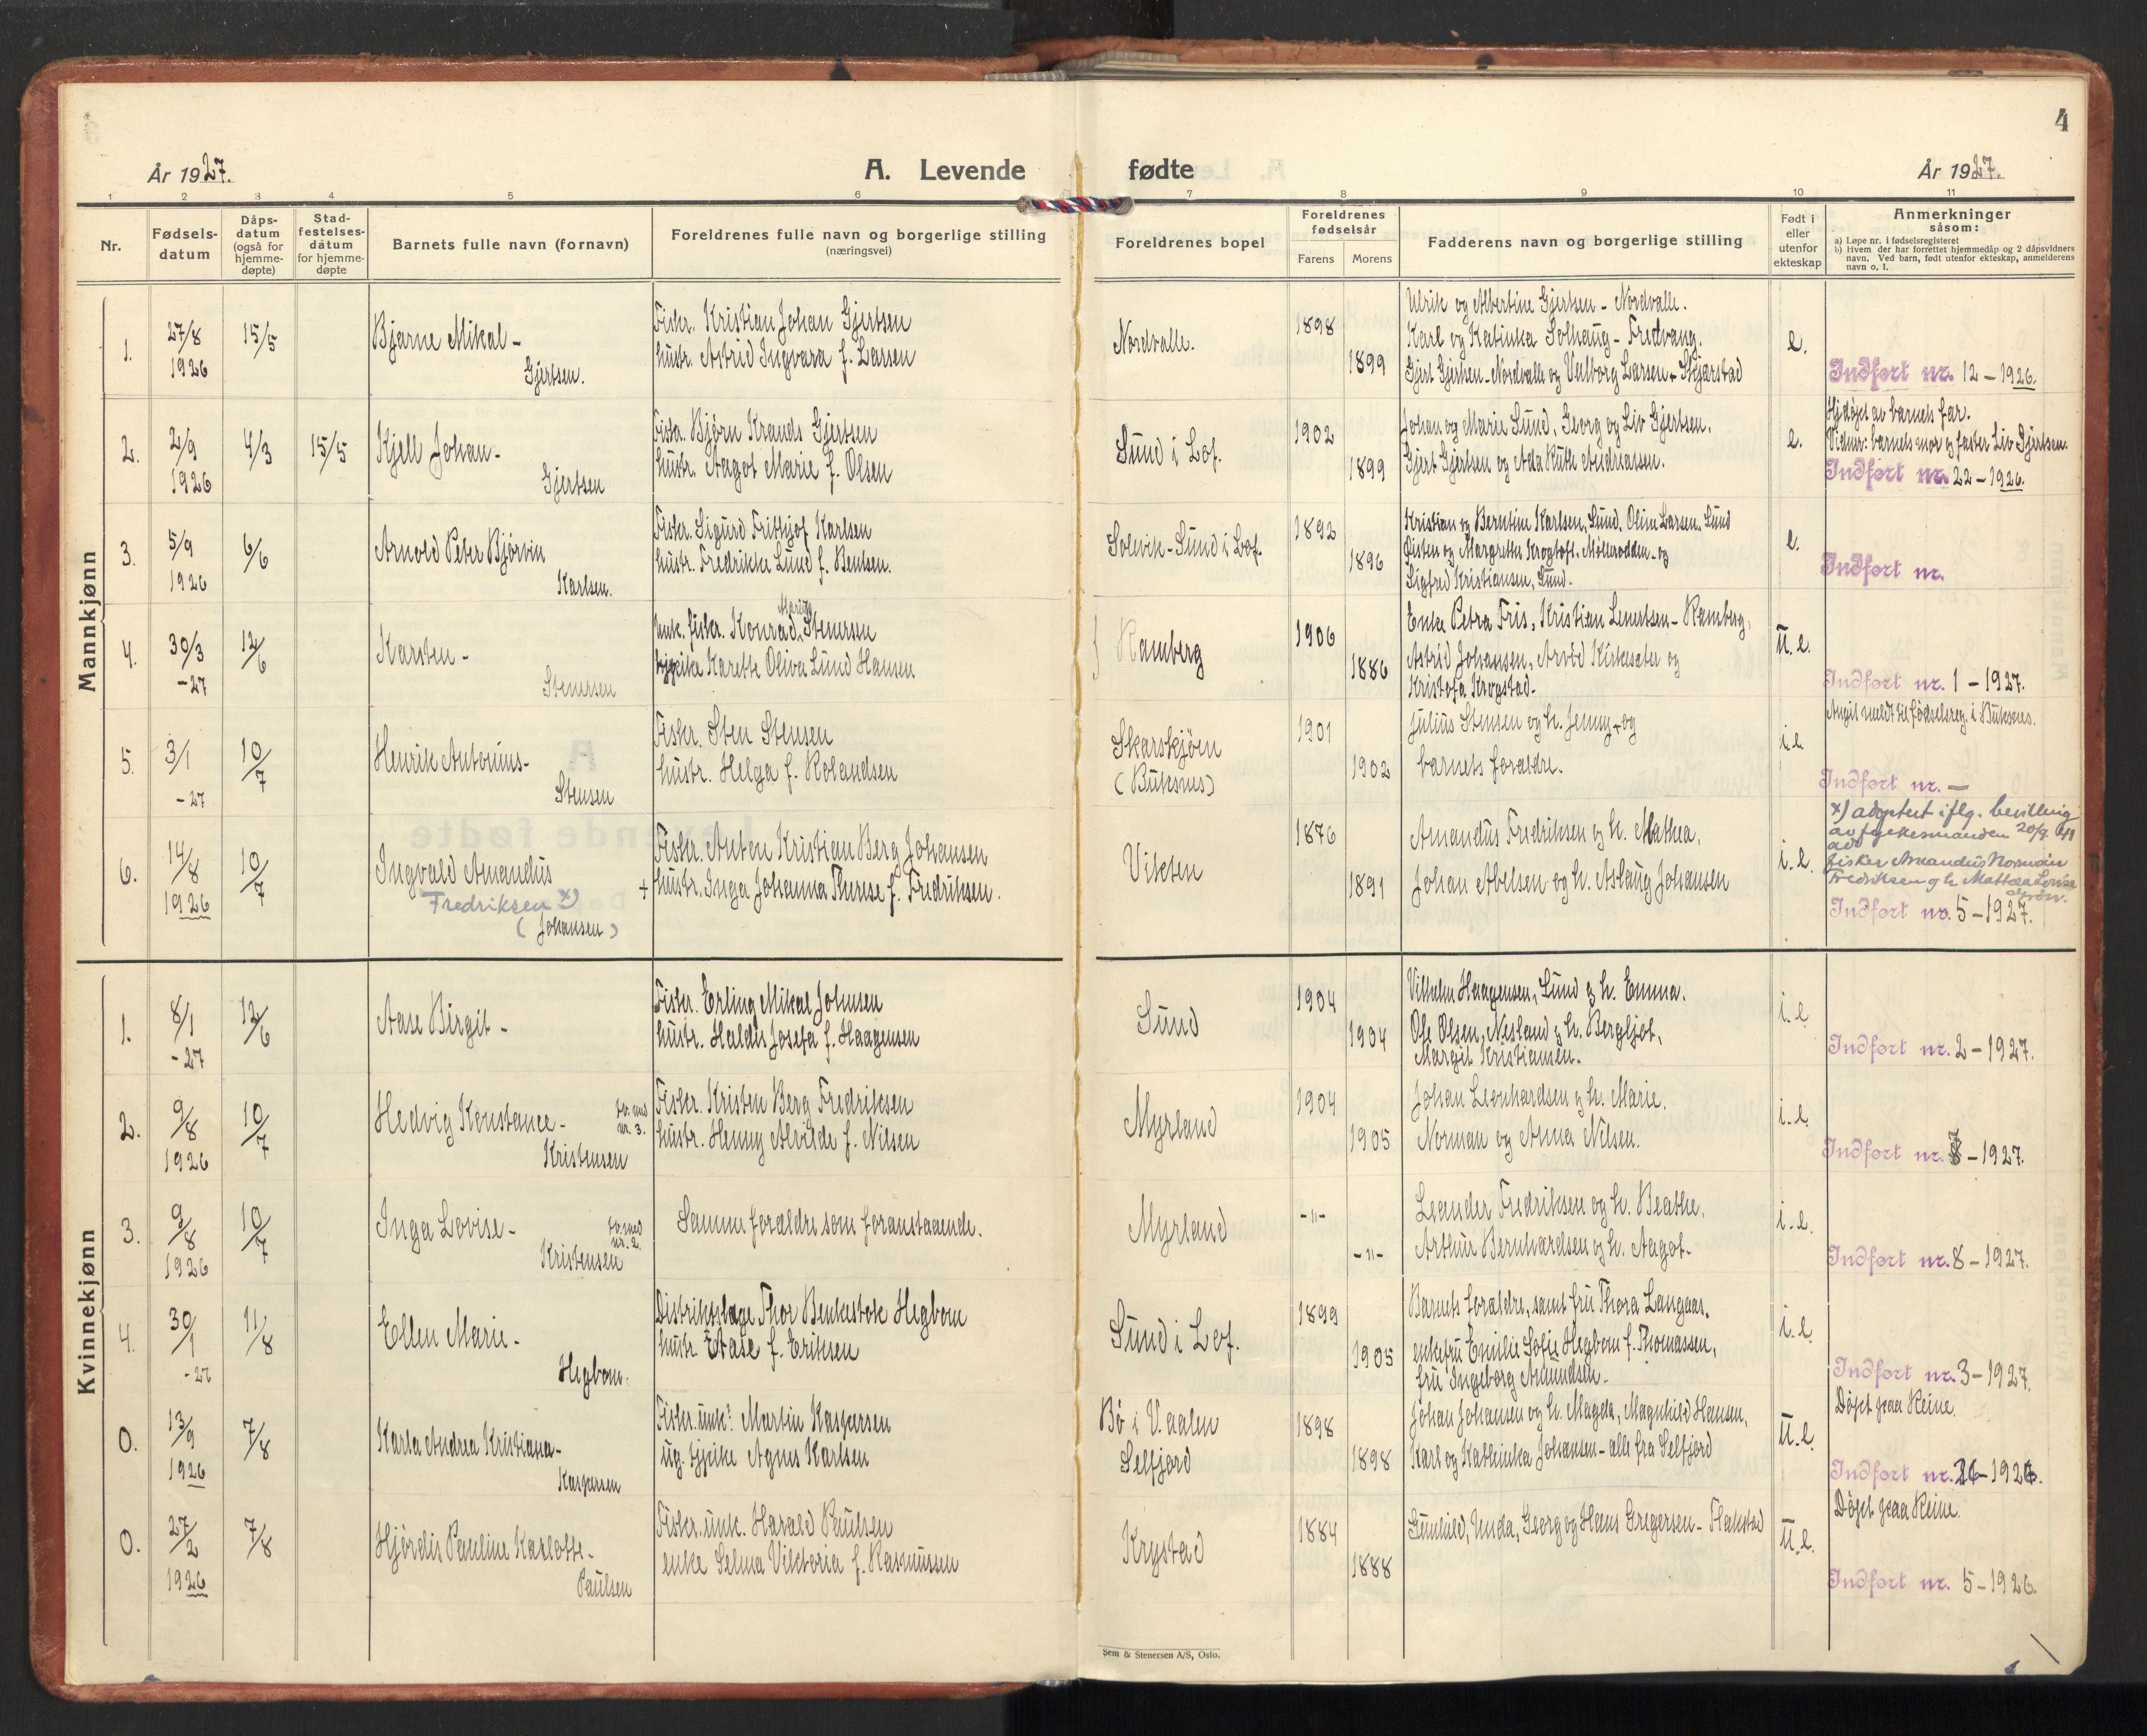 4
År 1927.
A. Levende fødte
År 1927.
1 2 3 4 5 6 7 8 9 10 11
Nr.
Fødsels-
datum
Dåps-
datum
(også for
hjemme-
døpte)
Stad-
festelses-
dåtum
for hjemme-
døpte
Barnets fulle navn (fornavn)
Foreldrenes fulle navn og borgerlige stilling
(næringsvei)
Foreldrenes bopel
Foreldrenes
fødselsår
Farens Morens
Fadderens navn og borgerlige stilling
Født i
eller
utenfor
ekteskap
Anmerkninger
såsom:
a) Løpe nr. i fødselsregisteret
b) Hvem der har forrettet hjemmedåp og 2 dåpsvidners
navn. Ved barn, født utenfor ekteskap, anmelderens
navn o. l.
Mannkjønn
1.
27/8
1926
15/5
Bjarne Mikal -
Gjertsen.
Fiskr. Kristian Johan Gjertsen
hustr. Astrid Ingvara f. Larsen
Nordvalle.
1898
1899
Ulrik og Albertine Gjertsen - Nordvalle.
Karl og Katinka Solhaug - Fredvang.
Gjert Gjertsen - Nordvalle og Valborg Larsen - Skjærstad
e.
Indført nr. 12 - 1926.
2.
2/9
1926
4/3
15/5
Kjell Johan -
Gjertsen
Fiskr. Bjørn Krands Gjertsen
hustr. Aagot Marie f. Olsen
Sund i Lof.
1902
1899
Johan og Marie Sund, Georg og Liv Gjertsen.
Gjert Gjertsen og Ada Ruth Andriassen.
e.
Hjdøpt av barnets far.
Vidner: barnets mor og faster Liv Gjertsen.
Indført nr. 22 - 1926.
3.
5/9
1926
6/6
Arnold Peter Bjørvin
Karlsen.
Fiskr. Sigurd Frithjof Karlsen
hustr. Fredrikke Lund f. Bentsen.
Solvik - Sund i Lof.
1892
1896
Kristian og Berntine Karlsen, Sund. Oline Larsen, Sund
Øisten og Margrethe Krogtoft - Mølleradden - og
Sigfred Kristiansen, Sund.
e.
Indført nr.
4.
30/3
-27
12/6
Karsten -
Stenersen
Unk. fiskr. Konrad Marius Stenersen
tjpike Karette Oliva Lund Hansen
Ramberg
1906
1886
Enke Petra Fris, Kristian Lenertsen - Ramberg,
Astrid Johansen, Arvid Kirkesæter og
Kristofa Krogstad -
U. e.
Indført nr. 1 - 1927.
5.
3/1
-27
10/7
Henrik Antonius -
Stensen
Fiskr. Sten Stensen
hustr. Helga f. Rolandsen
Skarskjøen
(Buksnes)
1901
1902
Julius Stensen og h. Jenny - og
barnets forældre.
i. e.
Angit meldt til fødselsreg. i Buksnes.
Indført nr. -
6.
14/8
1926
10/7
Ingvald Amandus
Fredriksen x)
(Johansen)
Fiskr. Anton Kristian Berg Johansen
+ hustr. Inga Johanna Therese f. Fredriksen.
Vikten
1876
1891
Amandus Fredriksen og h. Mathea.
Johan Abelsen og h. Aslaug Johansen
i. e.
x) adoptert iflg. bevilling
av fylkesmanden 20/9. 41
av
fisker Amandus Norman
Fredriksen og h. Mathea Lovise
Indført nr. 5 - 1927.
Kvinnekjønn
1.
8/1
-27
12/6
Aase Birgit -
Fiskr. Erling Mikal Johnsen
hustr. Haldis Josefa f. Haagensen
Sund
1904
1904
Vilhelm Haagensen, Sund og h. Emma.
Ole Olsen, Nesland og h. Bergljot,
Margit Kristiansen.
i. e
Indført nr. 2 - 1927.
2.
9/8
1926
10/7
Hedvig Konstance -
tv. med
nr. 3.
Kristensen
Fiskr. Kristen Berg Fredriksen
hustr. Henny Alvilde f. Nilsen
Myrland
1904
1905
Johan Leonhardsen og h. Marie.
Norman og Anna Nilsen.
i. e.
Indført nr. 7 - 1927.
3.
9/8
1926
10/7
Inga Lovise -
tv. med
nr. 2.
Kristensen
Samme forældre som foranstaaende.
Myrland
-"-
-"-
Leander Fredriksen og h. Beathe.
Arthur Bernhardsen og h. Aagot -
i. e.
Indført nr. 8 - 1927.
4.
30/1
-27
11/8
Ellen Marie -
Hegbom.
Distriktslæge Thor Benkestok Hegbom
hustr. Aase f. Eriksen
Sund i Lof.
1899
1905
Barnets forældre, samt fru Thora Langaas,
enkefru Emilie Sofie Hegbom f. Thomassen,
fru Ingeborg Amundsen -
i. e.
Indført nr. 3 - 1927.
0.
13/9
1926
7/8
Karla Andrea Kristiana -
Kaspersen
Fiskr. unk. Martin Kaspersen
ug. tjpike Agnes Karlsen
Bø i V.aalen
Selfjord
1898
1898
Johan Johansen og h. Magda, Magnhild Hansen,
Karl og Kathinka Johansen - alle fra Selfjord
U. e.
Døpt paa Reine.
Indført nr. 26 - 1926.
0.
27/2
1926
7/8
Hjørdis Pauline Karlotte -
Paulsen
Fiskr. unk. Harald Paulsen
enke Selma Viktoria f. Rasmussen
Krystad
1884
1888
Gunhild, Unda, Georg og Hans Gregersen - Flakstad
U. e.
Døpt paa Reine.
Indført nr. 5 - 1926.
Sem & Stenersen A/S, Oslo.